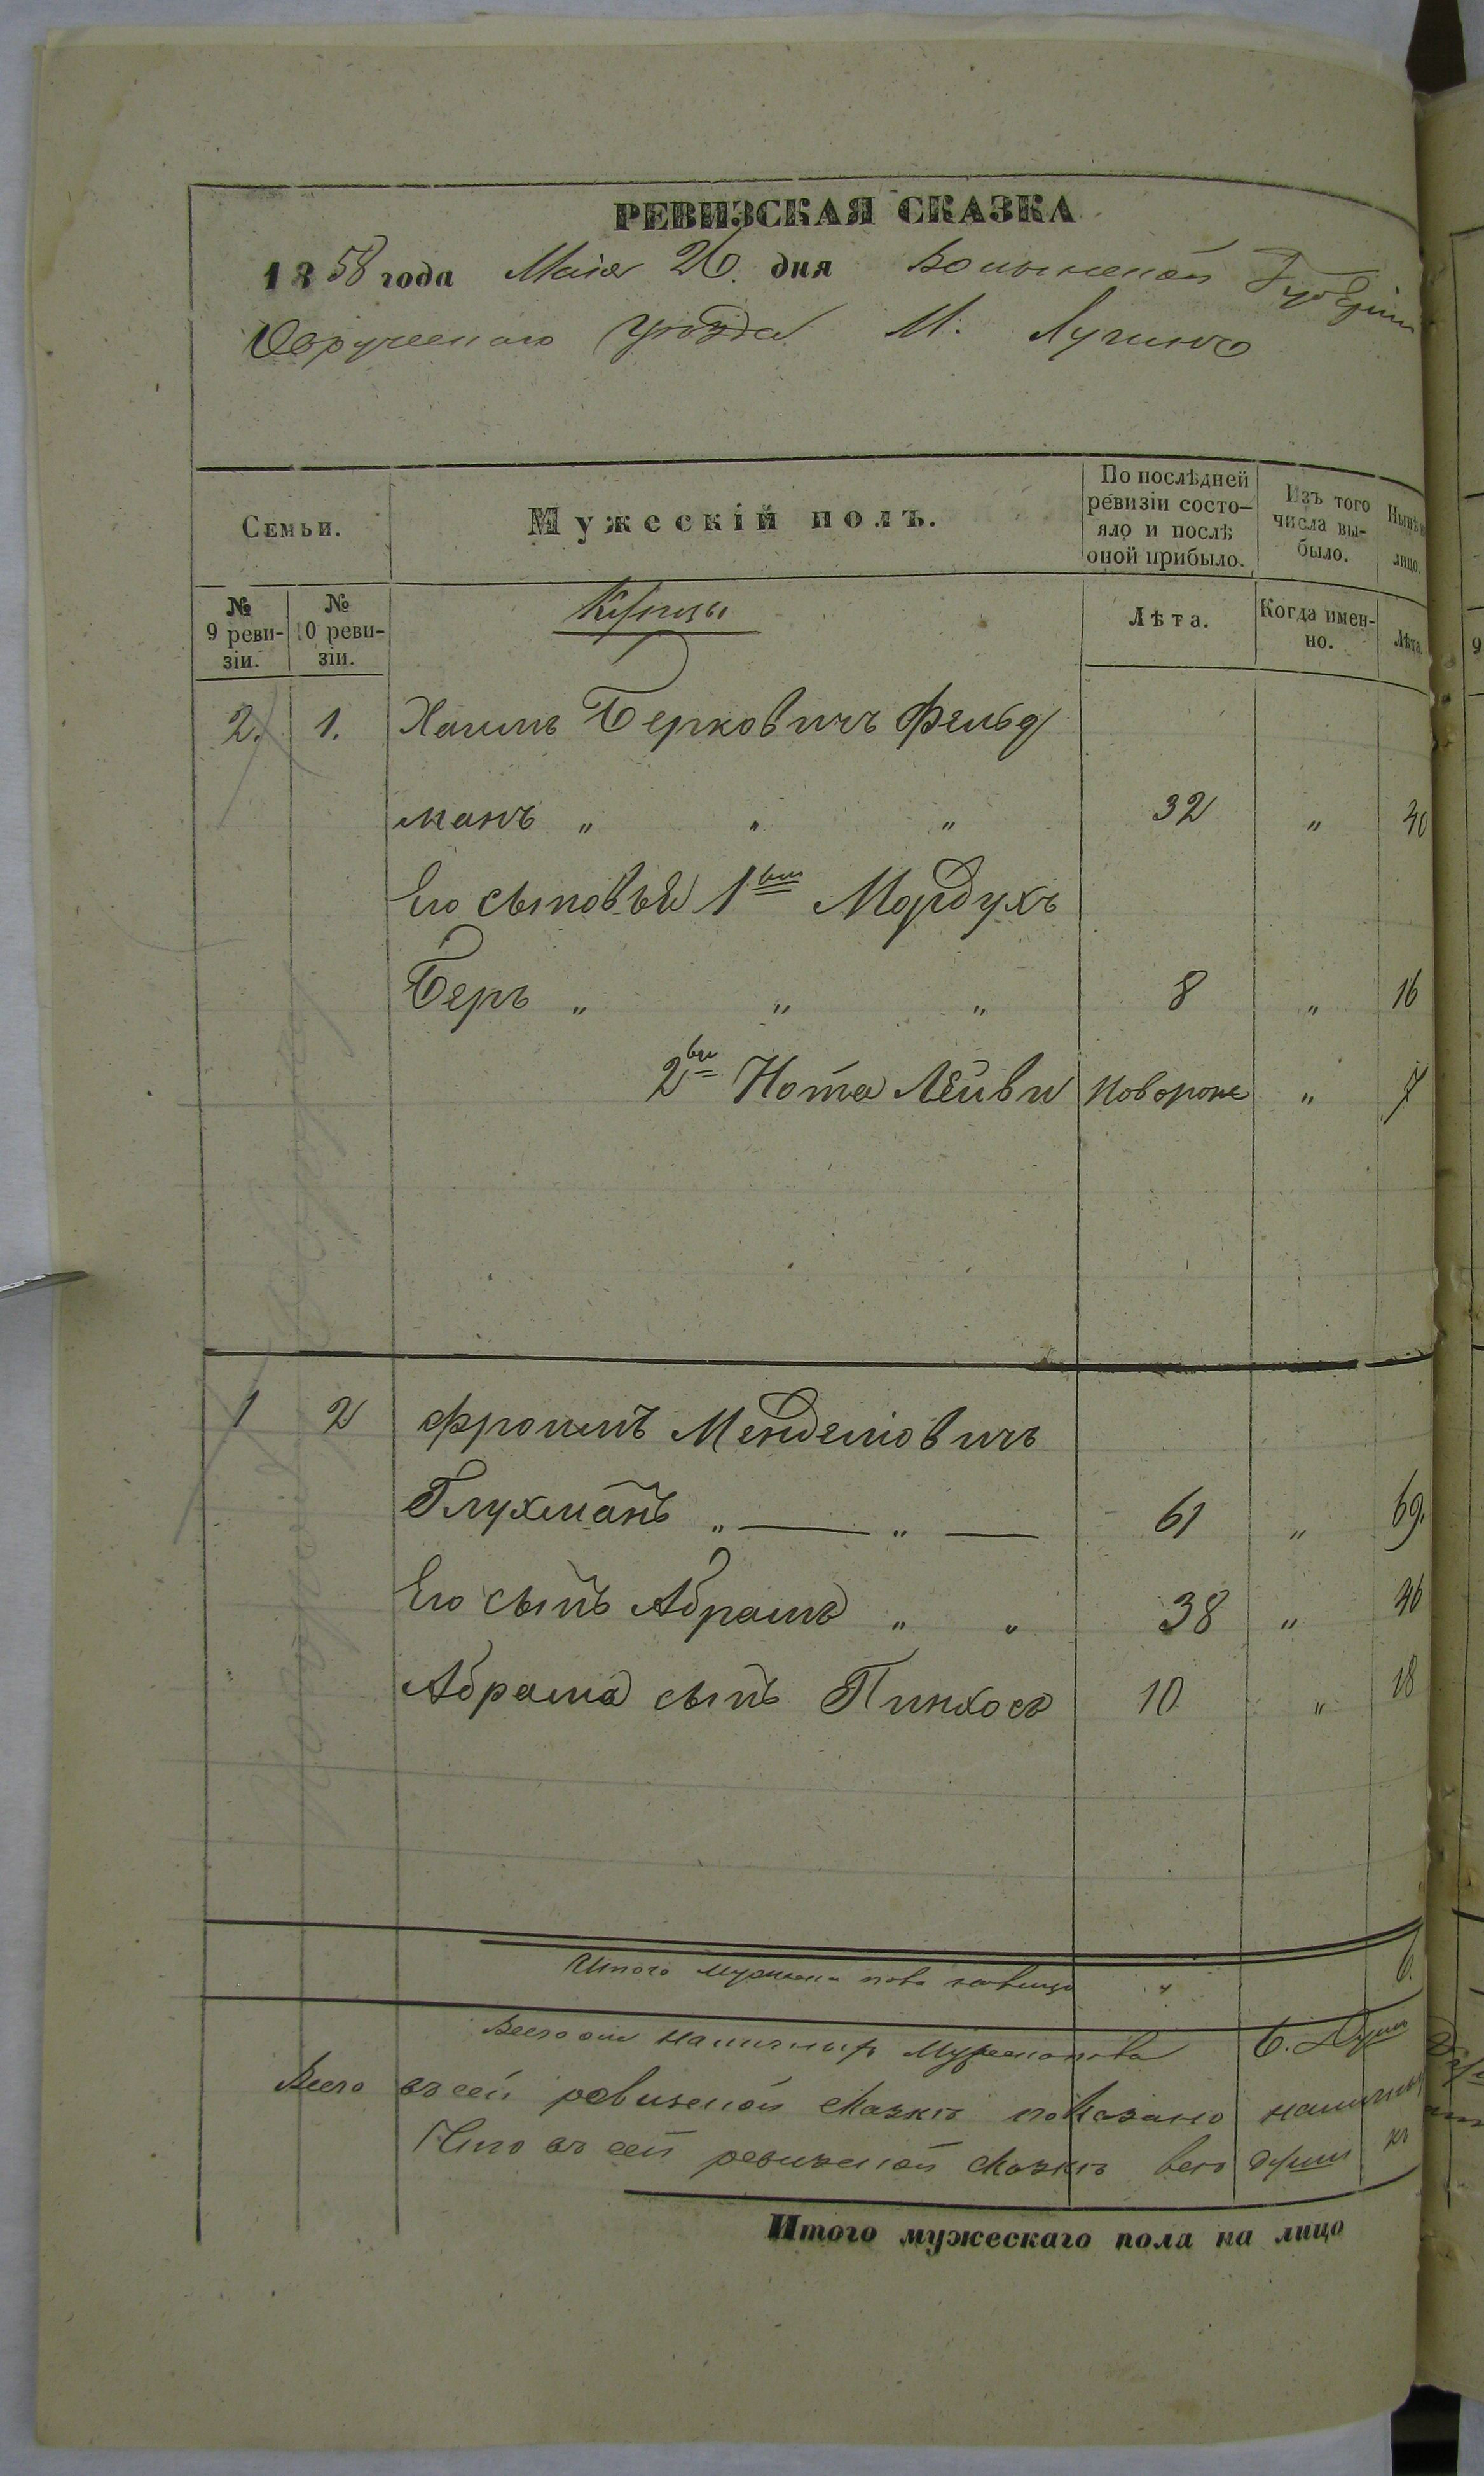 РЕВИЗСКАЯ СКАЗКА
1858 года Маія 26 дня Волынской Губерніи
Овручскаго уѣзда М. Лугинъ
Семьи.
Мужескій полъ.
По послѣдней ревизіи состо-
яло и послѣ
оной прибыло.
Изъ того
числа вы-
было.
Нынѣ
лицо.
№
9 реви-
зіи.
№
10 реви-
зіи.
Купцы
Лѣта.
Когда имен-
но.
Лѣта.
2. 1. Хаимъ Берковичъ Фельд
манъ „ „ „ 32 „ 40
Его сыновья 1вый Мордухъ
Беръ „ „ „ 8 „ 16
2вый Нота Лейви новорож „ 7
1 2 Фроимъ Менделіовичъ
Глухманъ „ — „ — 61 „ 69.
Его сынъ Абрамъ „ „ 38 „ 46
Абрама сынъ Пинхосъ 10 „ 18
Итого мужеска пола налицо „ 6.
Всего наличныхъ 6. Душъ
Всего въ сей ревизской сказкѣ показано наличныхъ
Что въ сей ревизской сказкѣ всѣ души
Итого мужескаго пола на лицо